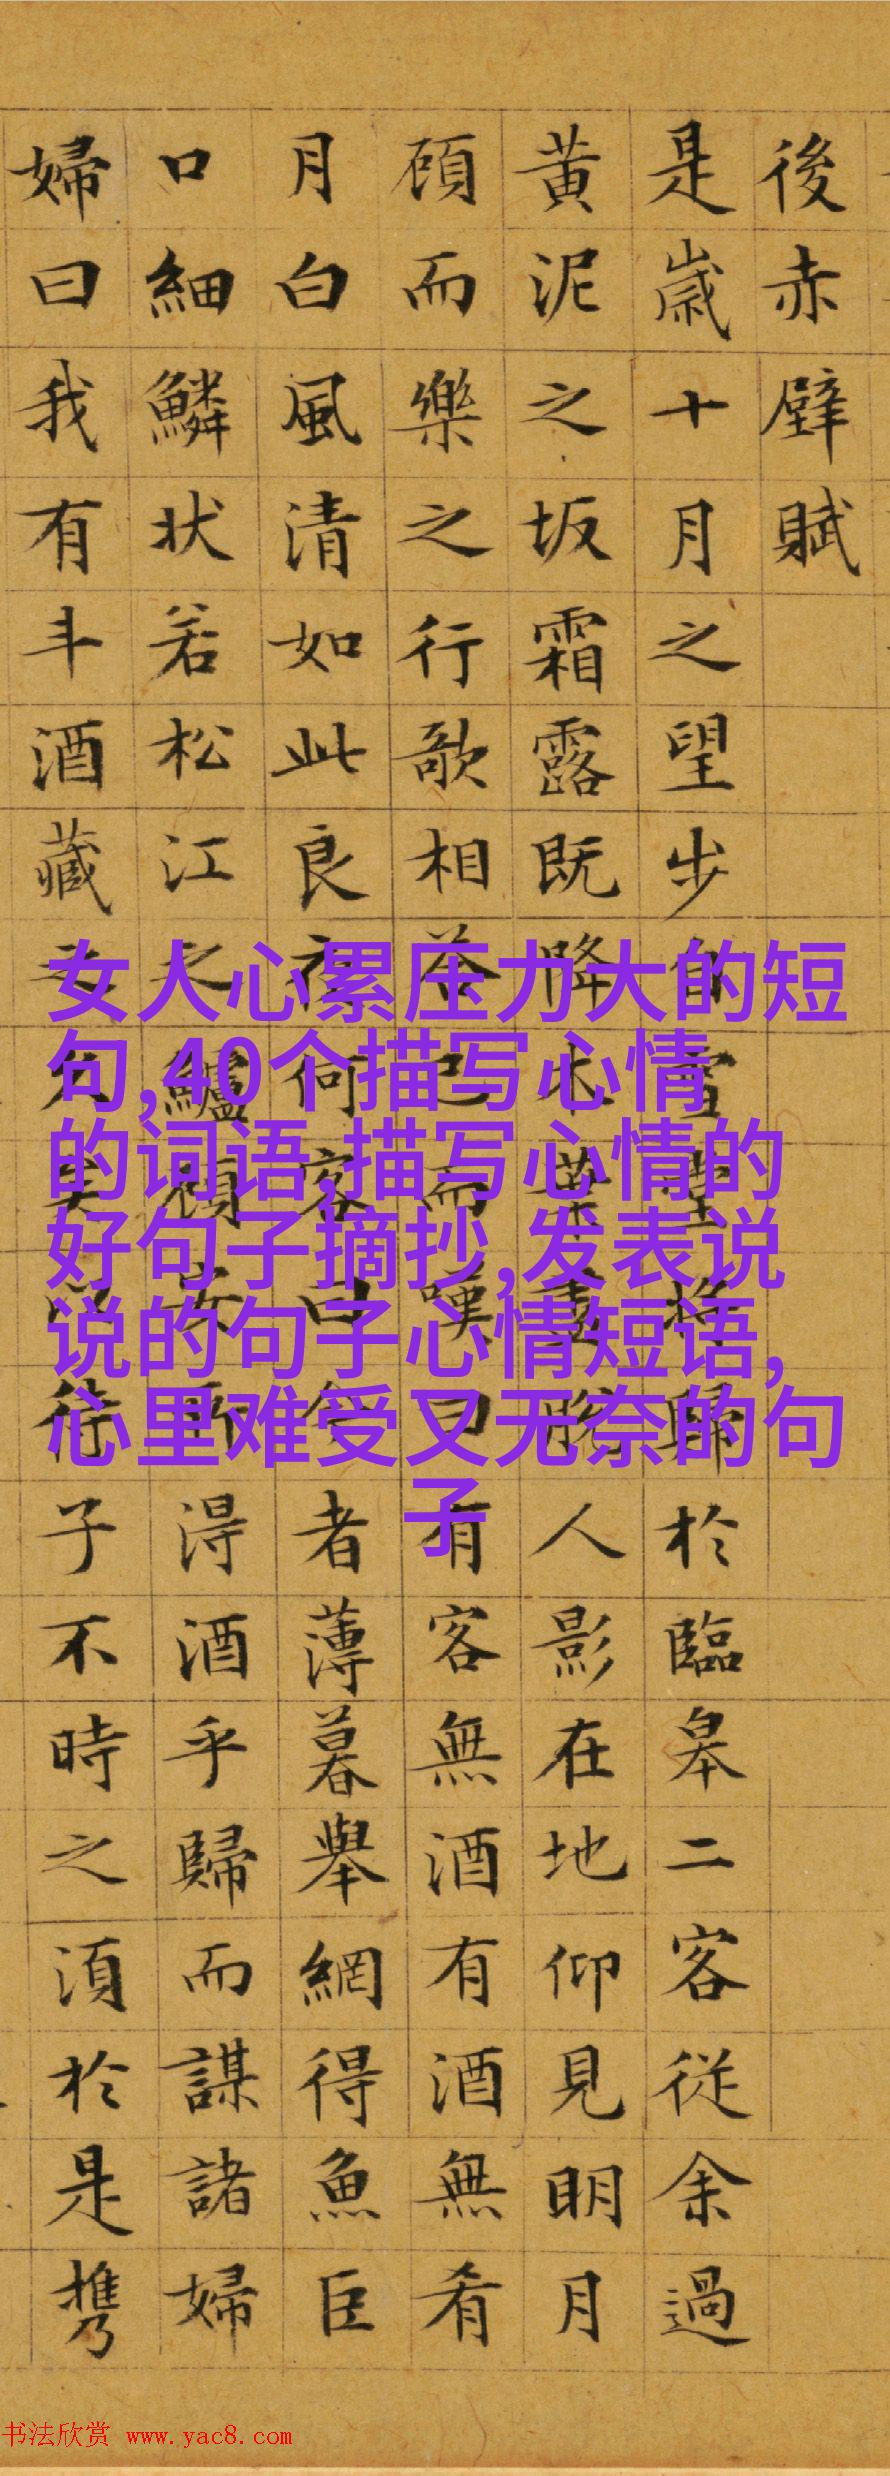 後赤壁賦
是歲十月之望步自雪堂將歸於臨皋二客從余過
黄泥之坂霜露既降木葉盡脫人影在地仰見明月
頋而樂之行歌相答已而嘆曰有客無酒有酒無肴
月白風清如此良夜何客曰今者薄暮舉網得魚巨
口細鱗状若松江之鱸頋安所得酒乎歸而謀諸婦
婦曰我有斗酒藏之久矣以待子不時之須於是携
女人心累压力大的短
句,40个描写心情
的词语,描写心情的
好句子摘抄,发表说
说的句子心情短语,
心里难受又无奈的句
子
书法欣赏 www.yac8.com